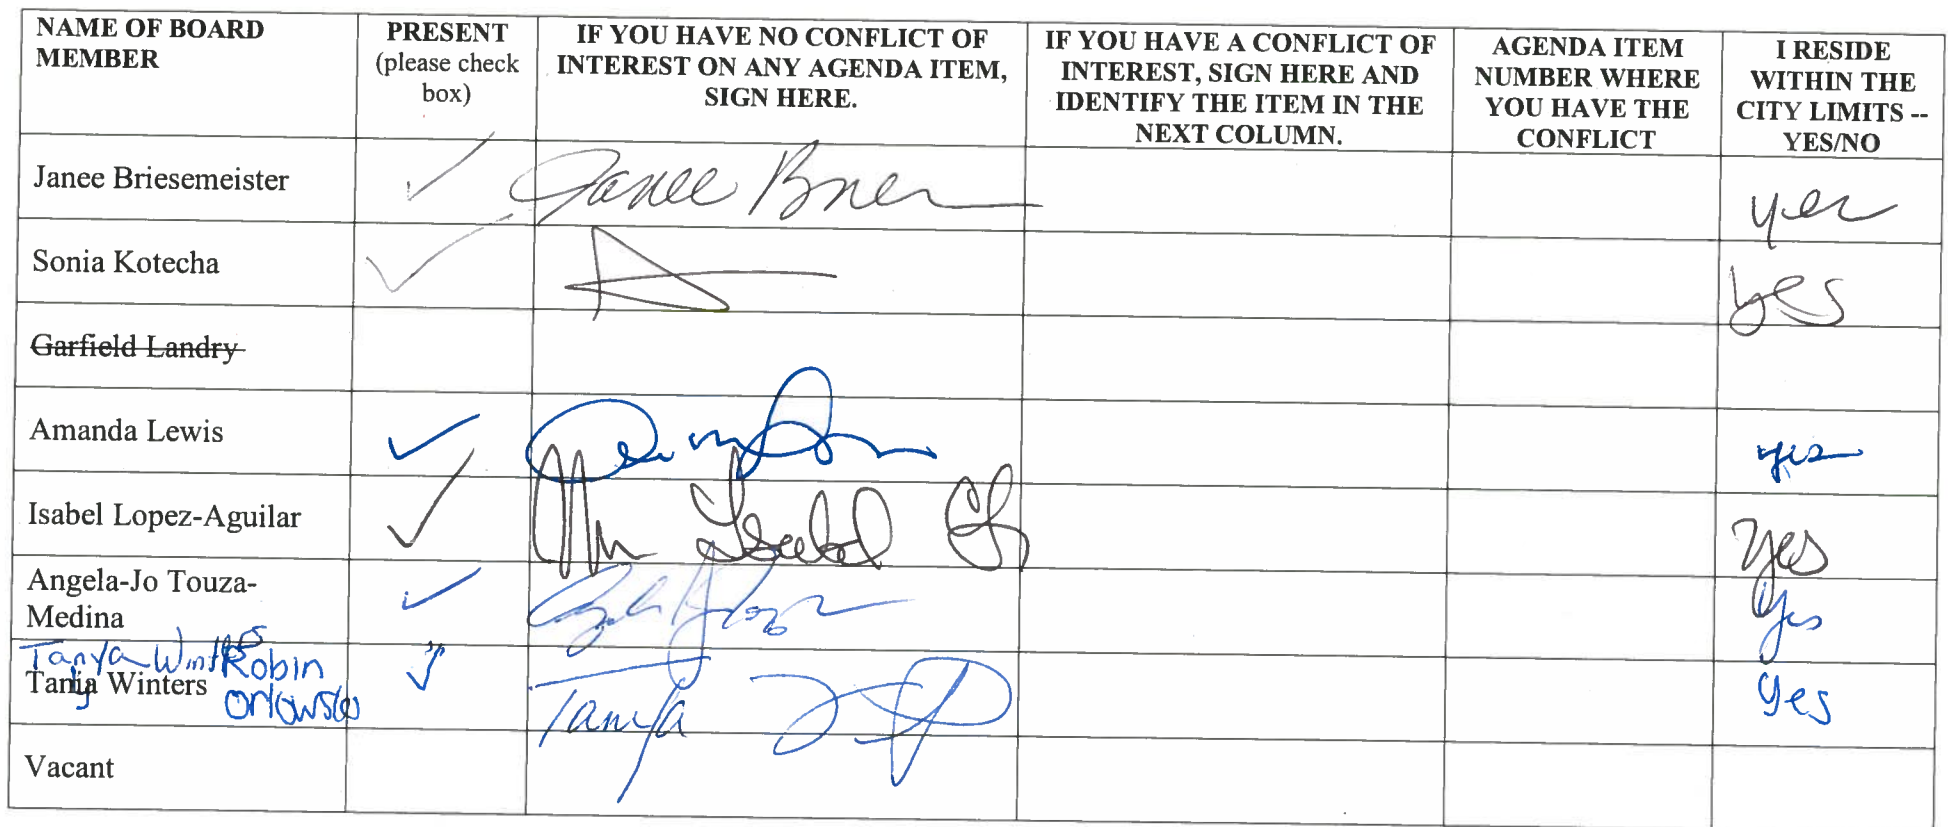 NAME OF BOARD MEMBER
PRESENT (please check box)
IF YOU HAVE NO CONFLICT OF INTEREST ON ANY AGENDA ITEM, SIGN HERE.
IF YOU HAVE A CONFLICT OF INTEREST, SIGN HERE AND IDENTIFY THE ITEM IN THE NEXT COLUMN.
AGENDA ITEM NUMBER WHERE YOU HAVE THE CONFLICT
I RESIDE WITHIN THE CITY LIMITS -- YES/NO
Janee Briesemeister Janee yes
Sonia Kotecha yes
Garfield Landry
Amanda Lewis yes
Isabel Lopez-Aguilar Isabel yes
Angela-Jo Touza-Medina yes
Tanya Winters Robin
Tanja Winters Orlowski Tanya yes
Vacant